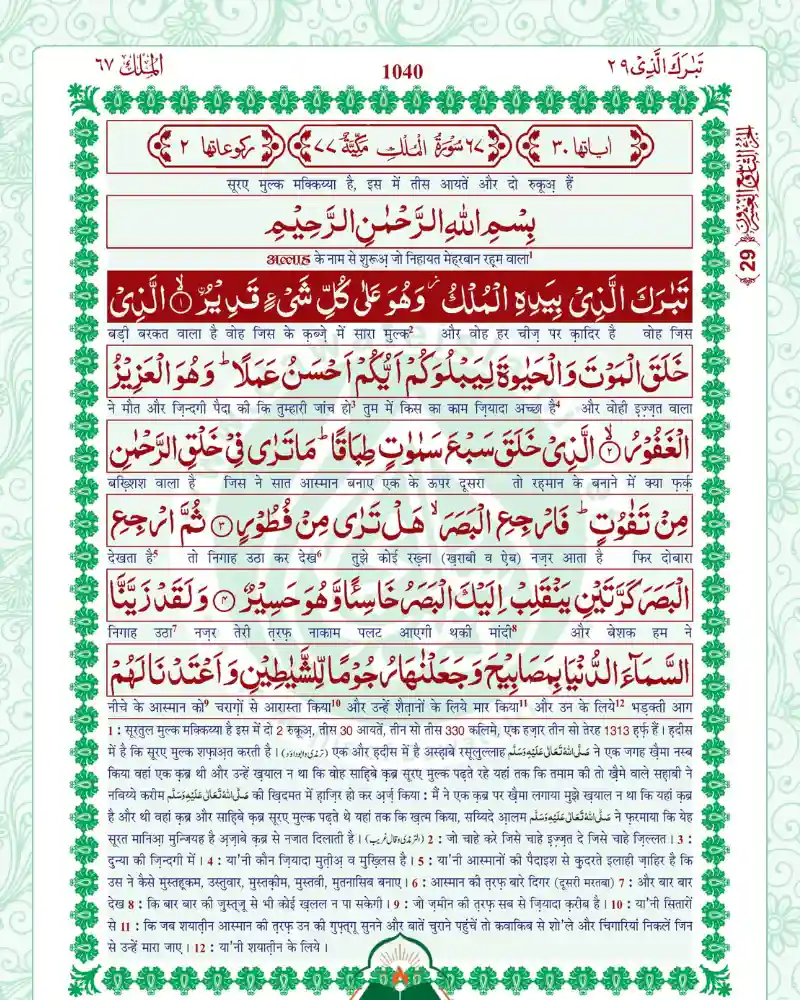 تَبٰرَكَ الَّذِیْ ٢٩
1040
الْمُلْك ٦٧
اٰیاتھا ٣٠ ٦٧ سُوْرَةُ الْمُلْكِ مَكِّيَّةٌ ٧٧ رکوعاتھا ٢
सूरए मुल्क मक्किय्या है, इस में तीस आयतें और दो रुकूअ़ हैं
بِسْمِ اللهِ الرَّحْمٰنِ الرَّحِیْمِ
अल्लाह के नाम से शुरूअ़ जो निहायत मेह्रबान रह्म वाला1
تَبٰرَكَ الَّذِیْ بِیَدِهِ الْمُلْكُ ٘ وَهُوَ عَلٰى كُلِّ شَیْءٍ قَدِیْرُ ۙ﴿١﴾ الَّذِیْ
बड़ी बरकत वाला है वोह जिस के क़ब्ज़े में सारा मुल्क2 और वोह हर चीज़ पर क़ादिर है वोह जिस
خَلَقَ الْمَوْتَ وَالْحَیٰوةَ لِیَبْلُوَكُمْ اَیُّكُمْ اَحْسَنُ عَمَلًا ؕ وَهُوَ الْعَزِیْزُ
ने मौत और ज़िन्दगी पैदा की कि तुम्हारी जांच हो3 तुम में किस का काम ज़ियादा अच्छा है4 और वोही इ़ज़्ज़त वाला
الْغَفُوْرُ ۙ﴿٢﴾ الَّذِیْ خَلَقَ سَبْعَ سَمٰوٰتٍ طِبَاقًا ؕ مَا تَرٰى فِیْ خَلْقِ الرَّحْمٰنِ
बख़्शिश वाला है जिस ने सात आस्मान बनाए एक के ऊपर दूसरा तो रहमान के बनाने में क्या फ़र्क़
مِنْ تَفٰوُتٍ ؕ فَارْجِعِ الْبَصَرَ ۙ هَلْ تَرٰى مِنْ فُطُوْرٍ ﴿٣﴾ ثُمَّ ارْجِعِ
देखता है5 तो निगाह उठा कर देख6 तुझे कोई रख़्ना (ख़राबी व ऐ़ब) नज़र आता है फिर दोबारा
الْبَصَرَ كَرَّتَیْنِ یَنْقَلِبْ اِلَیْكَ الْبَصَرُ خَاسِئًا وَّهُوَ حَسِیْرٌ ﴿٤﴾ وَلَقَدْ زَیَّنَّا
निगाह उठा7 नज़र तेरी त़रफ़ नाकाम पलट आएगी थकी मांदी8 और बेशक हम ने
السَّمَآءَ الدُّنْیَا بِمَصَابِیْحَ وَجَعَلْنٰهَا رُجُوْمًا لِّلشَّیٰطِیْنِ وَاَعْتَدْنَا لَهُمْ
नीचे के आस्मान को9 चराग़ों से आरास्ता किया10 और उन्हें शैत़ानों के लिये मार किया11 और उन के लिये12 भड़क्ती आग
1 : सूरतुल मुल्क मक्किय्या है इस में दो 2 रुकूअ़, तीस 30 आयतें, तीन सो तीस 330 कलिमे, एक हज़ार तीन सो तेरह 1313 ह़र्फ़ हैं । ह़दीस
में है कि सूरए मुल्क शफ़ाअ़त करती है । (ترمذی وابوداود) एक और ह़दीस में है अस्ह़ाबे रसूलुल्लाह صَلَّی اللهُ تَعَالٰی عَلَیْهِ وَسَلَّم ने एक जगह ख़ैमा नस्ब
किया वहां एक क़ब्र थी और उन्हें ख़याल न था कि वोह साह़िबे क़ब्र सूरए मुल्क पढ़ते रहे यहां तक कि तमाम की तो ख़ैमे वाले सह़ाबी ने
नबिय्ये करीम صَلَّی اللهُ تَعَالٰی عَلَیْهِ وَسَلَّم की ख़िदमत में ह़ाज़िर हो कर अ़र्ज़ किया : मैं ने एक क़ब्र पर ख़ैमा लगाया मुझे ख़याल न था कि यहां क़ब्र
है और थी वहां क़ब्र और साह़िबे क़ब्र सूरए मुल्क पढ़ते थे यहां तक कि ख़त्म किया, सय्यिदे आ़लम صَلَّی اللهُ تَعَالٰی عَلَیْهِ وَسَلَّم ने फ़रमाया कि येह
सूरत मानिआ़ मुन्जियह है अ़ज़ाबे क़ब्र से नजात दिलाती है । (الترمذی وقال غریب) 2 : जो चाहे करे जिसे चाहे इ़ज़्ज़त दे जिसे चाहे ज़िल्लत । 3 :
दुन्या की ज़िन्दगी में । 4 : या'नी कौन ज़ियादा मुत़ीअ़ व मुख़्लिस है । 5 : या'नी आस्मानों की पैदाइश से क़ुदरते इलाही ज़ाहिर है कि
उस ने कैसे मुस्तह़्कम, उस्तुवार, मुस्तक़ीम, मुस्तवी, मुतनासिब बनाए । 6 : आस्मान की त़रफ़ बारे दिगर (दूसरी मरतबा) 7 : और बार बार
देख 8 : कि बार बार की जुस्तजू से भी कोई ख़लल न पा सकेगी । 9 : जो ज़मीन की त़रफ़ सब से ज़ियादा क़रीब है । 10 : या'नी सितारों
से 11 : कि जब शयात़ीन आस्मान की त़रफ़ उन की गुफ़्तगू सुनने और बातें चुराने पहुंचें तो कवाकिब से शो'ले और चिंगारियां निकलें जिन
से उन्हें मारा जाए । 12 : या'नी शयात़ीन के लिये ।
29